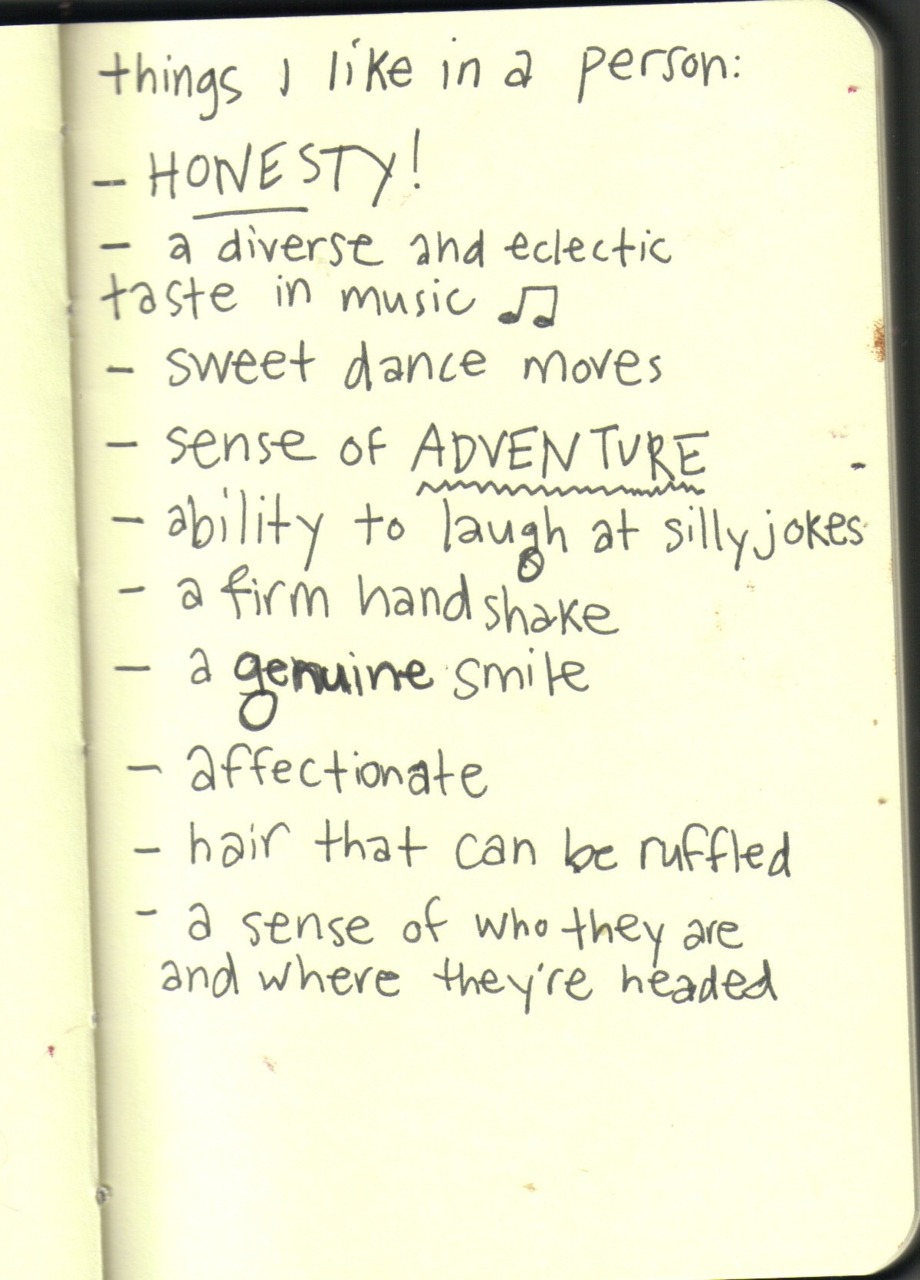 things I like in a person:
- HONESTY!
- a diverse and eclectic
taste in music ♫
- sweet dance moves
- sense of ADVENTURE
- ability to laugh at silly jokes
- a firm handshake
- a genuine smile
- affectionate
- hair that can be ruffled
- a sense of who they are
and where they're headed